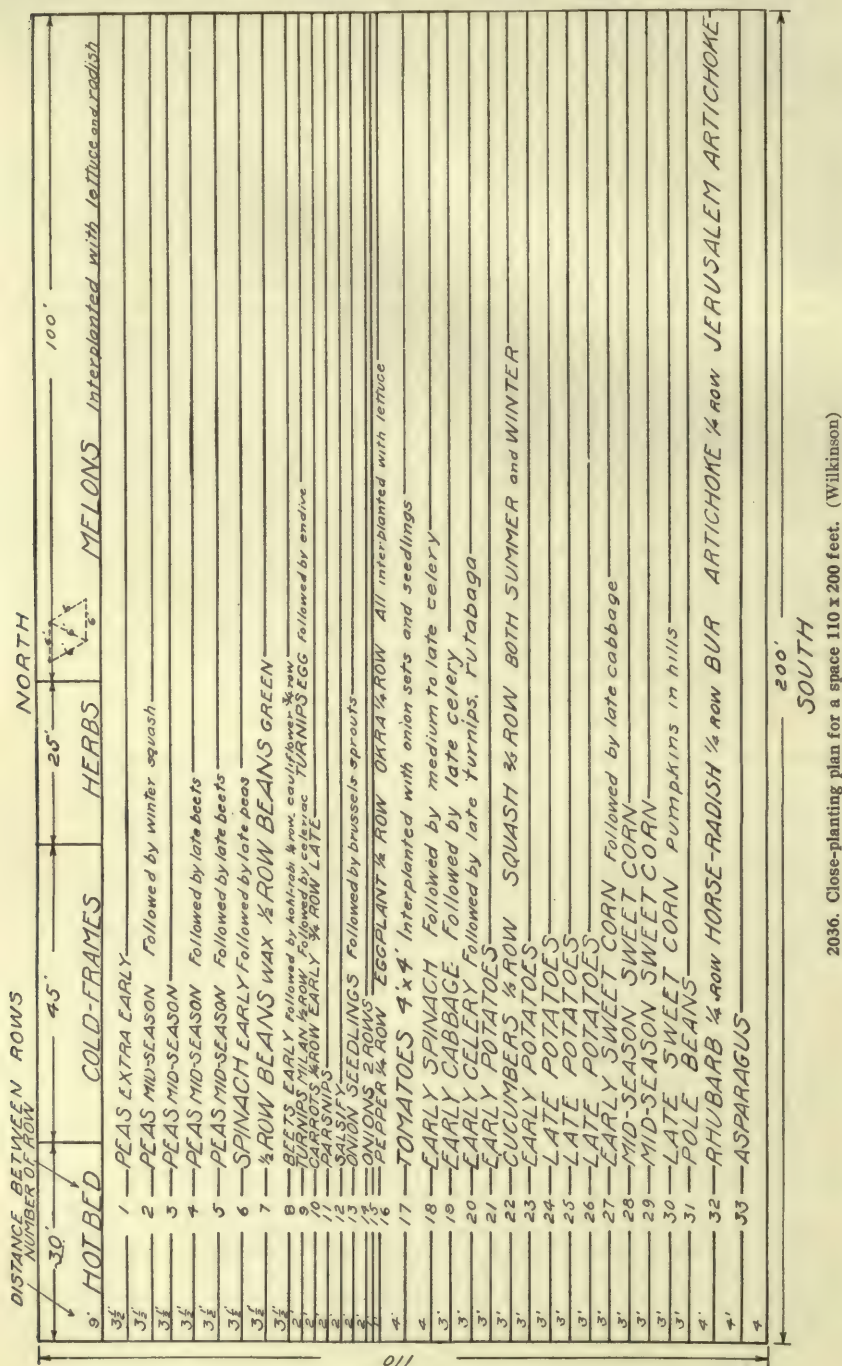 DISTANCE BETWEEN ROWS
NUMBER OF ROW
NORTH
30' 45' 25' 100'
9' HOT BED COLD-FRAMES HERBS MELONS Interplanted with lettuce and radish
3½' 1 PEAS EXTRA EARLY
3½' 2 PEAS MID-SEASON Followed by winter squash
3½' 3 PEAS MID-SEASON
3½' 4 PEAS MID-SEASON Followed by late beets
3½' 5 PEAS MID-SEASON Followed by late beets
3½' 6 SPINACH EARLY Followed by late peas
3½' 7 ½ ROW BEANS WAX ½ ROW BEANS GREEN
3½' 8 BEETS EARLY Followed by kohl-rabi ¼ row, cauliflower ¾ row
2' 9 TURNIPS MILAN ½ ROW Followed by celeriac TURNIPS EGG Followed by endive
2' 10 CARROTS ¼ ROW EARLY ¾ ROW LATE
2' 11 PARSNIPS
2' 12 SALSIFY
2' 13 ONION SEEDLINGS Followed by brussels sprouts
2' 14 ONIONS 2 ROWS
1' 15
16 PEPPER ¼ ROW EGGPLANT ½ ROW OKRA ¼ ROW All interplanted with lettuce
4' 17 TOMATOES 4'x4' Interplanted with onion sets and seedlings
4 18 EARLY SPINACH Followed by medium to late celery
3' 19 EARLY CABBAGE Followed by late celery
3' 20 EARLY CELERY Followed by late turnips, rutabaga
3' 21 EARLY POTATOES
3' 22 CUCUMBERS ¼ ROW SQUASH ¾ ROW BOTH SUMMER and WINTER
3' 23 EARLY POTATOES
3' 24 LATE POTATOES
3' 25 LATE POTATOES
3' 26 LATE POTATOES
3' 27 EARLY SWEET CORN Followed by late cabbage
3' 28 MID-SEASON SWEET CORN
3' 29 MID-SEASON SWEET CORN
3' 30 LATE SWEET CORN Pumpkins in hills
3' 31 POLE BEANS
4' 32 RHUBARB ¼ ROW HORSE-RADISH ¼ ROW BUR ARTICHOKE ¼ ROW JERUSALEM ARTICHOKE
4' 33 ASPARAGUS
4
110
200'
SOUTH
2036. Close-planting plan for a space 110 x 200 feet. (Wilkinson)